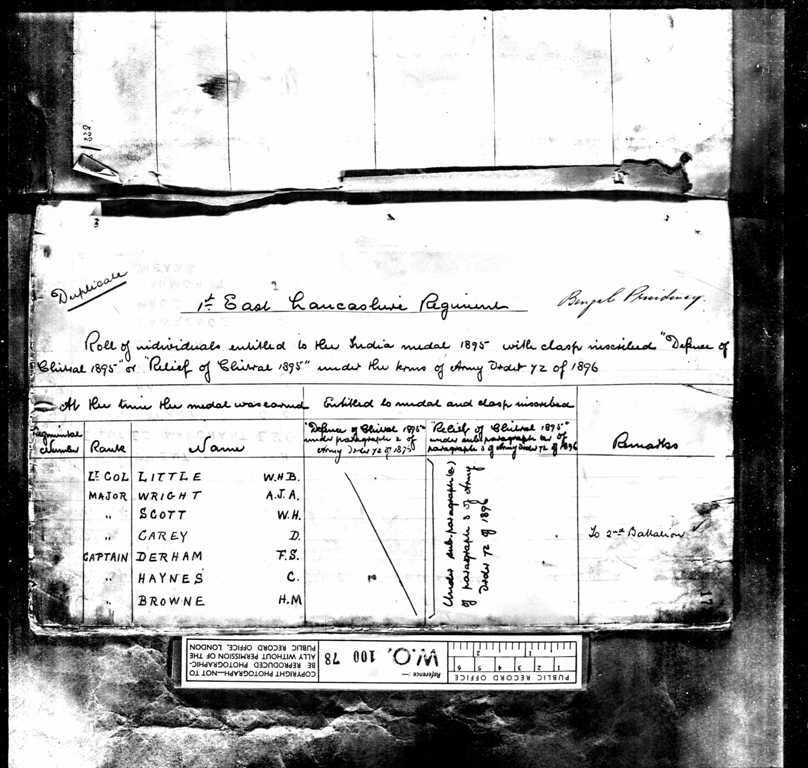 Duplicate
1st East Lancashire Regiment
Bengal Presidency.
Roll of individuals entitled to the India medal 1895 with clasp inscribed "Defence of
Chitral 1895" or "Relief of Chitral 1895" under the terms of Army Order 72 of 1896
At the time the medal was earned
Entitled to medal and clasp inscribed
Regimental Number
Rank
Name
"Defence of Chitral 1895"
under paragraph 2 of
Army Order 72 of 1896
"Relief of Chitral 1895"
under sub paragraph (a) of
paragraph 3 of Army Order 72 of 1896
Remarks
Lt COL LITTLE W.H.B.
MAJOR WRIGHT A.J.A.
" SCOTT W.H.
" CAREY D. To 2nd Battalion
CAPTAIN DERHAM F.S.
" HAYNES C.
" BROWNE H.M
Under sub. paragraph (a)
of paragraph 3 of Army
Order 72 of 1896
17
PUBLIC RECORD OFFICE
1 2 3 4 5 6
1 2
Reference:-
W.O. 100 78
COPYRIGHT PHOTOGRAPH-NOT TO
BE REPRODUCED PHOTOGRAPHIC-
ALLY WITHOUT PERMISSION OF THE
PUBLIC RECORD OFFICE, LONDON